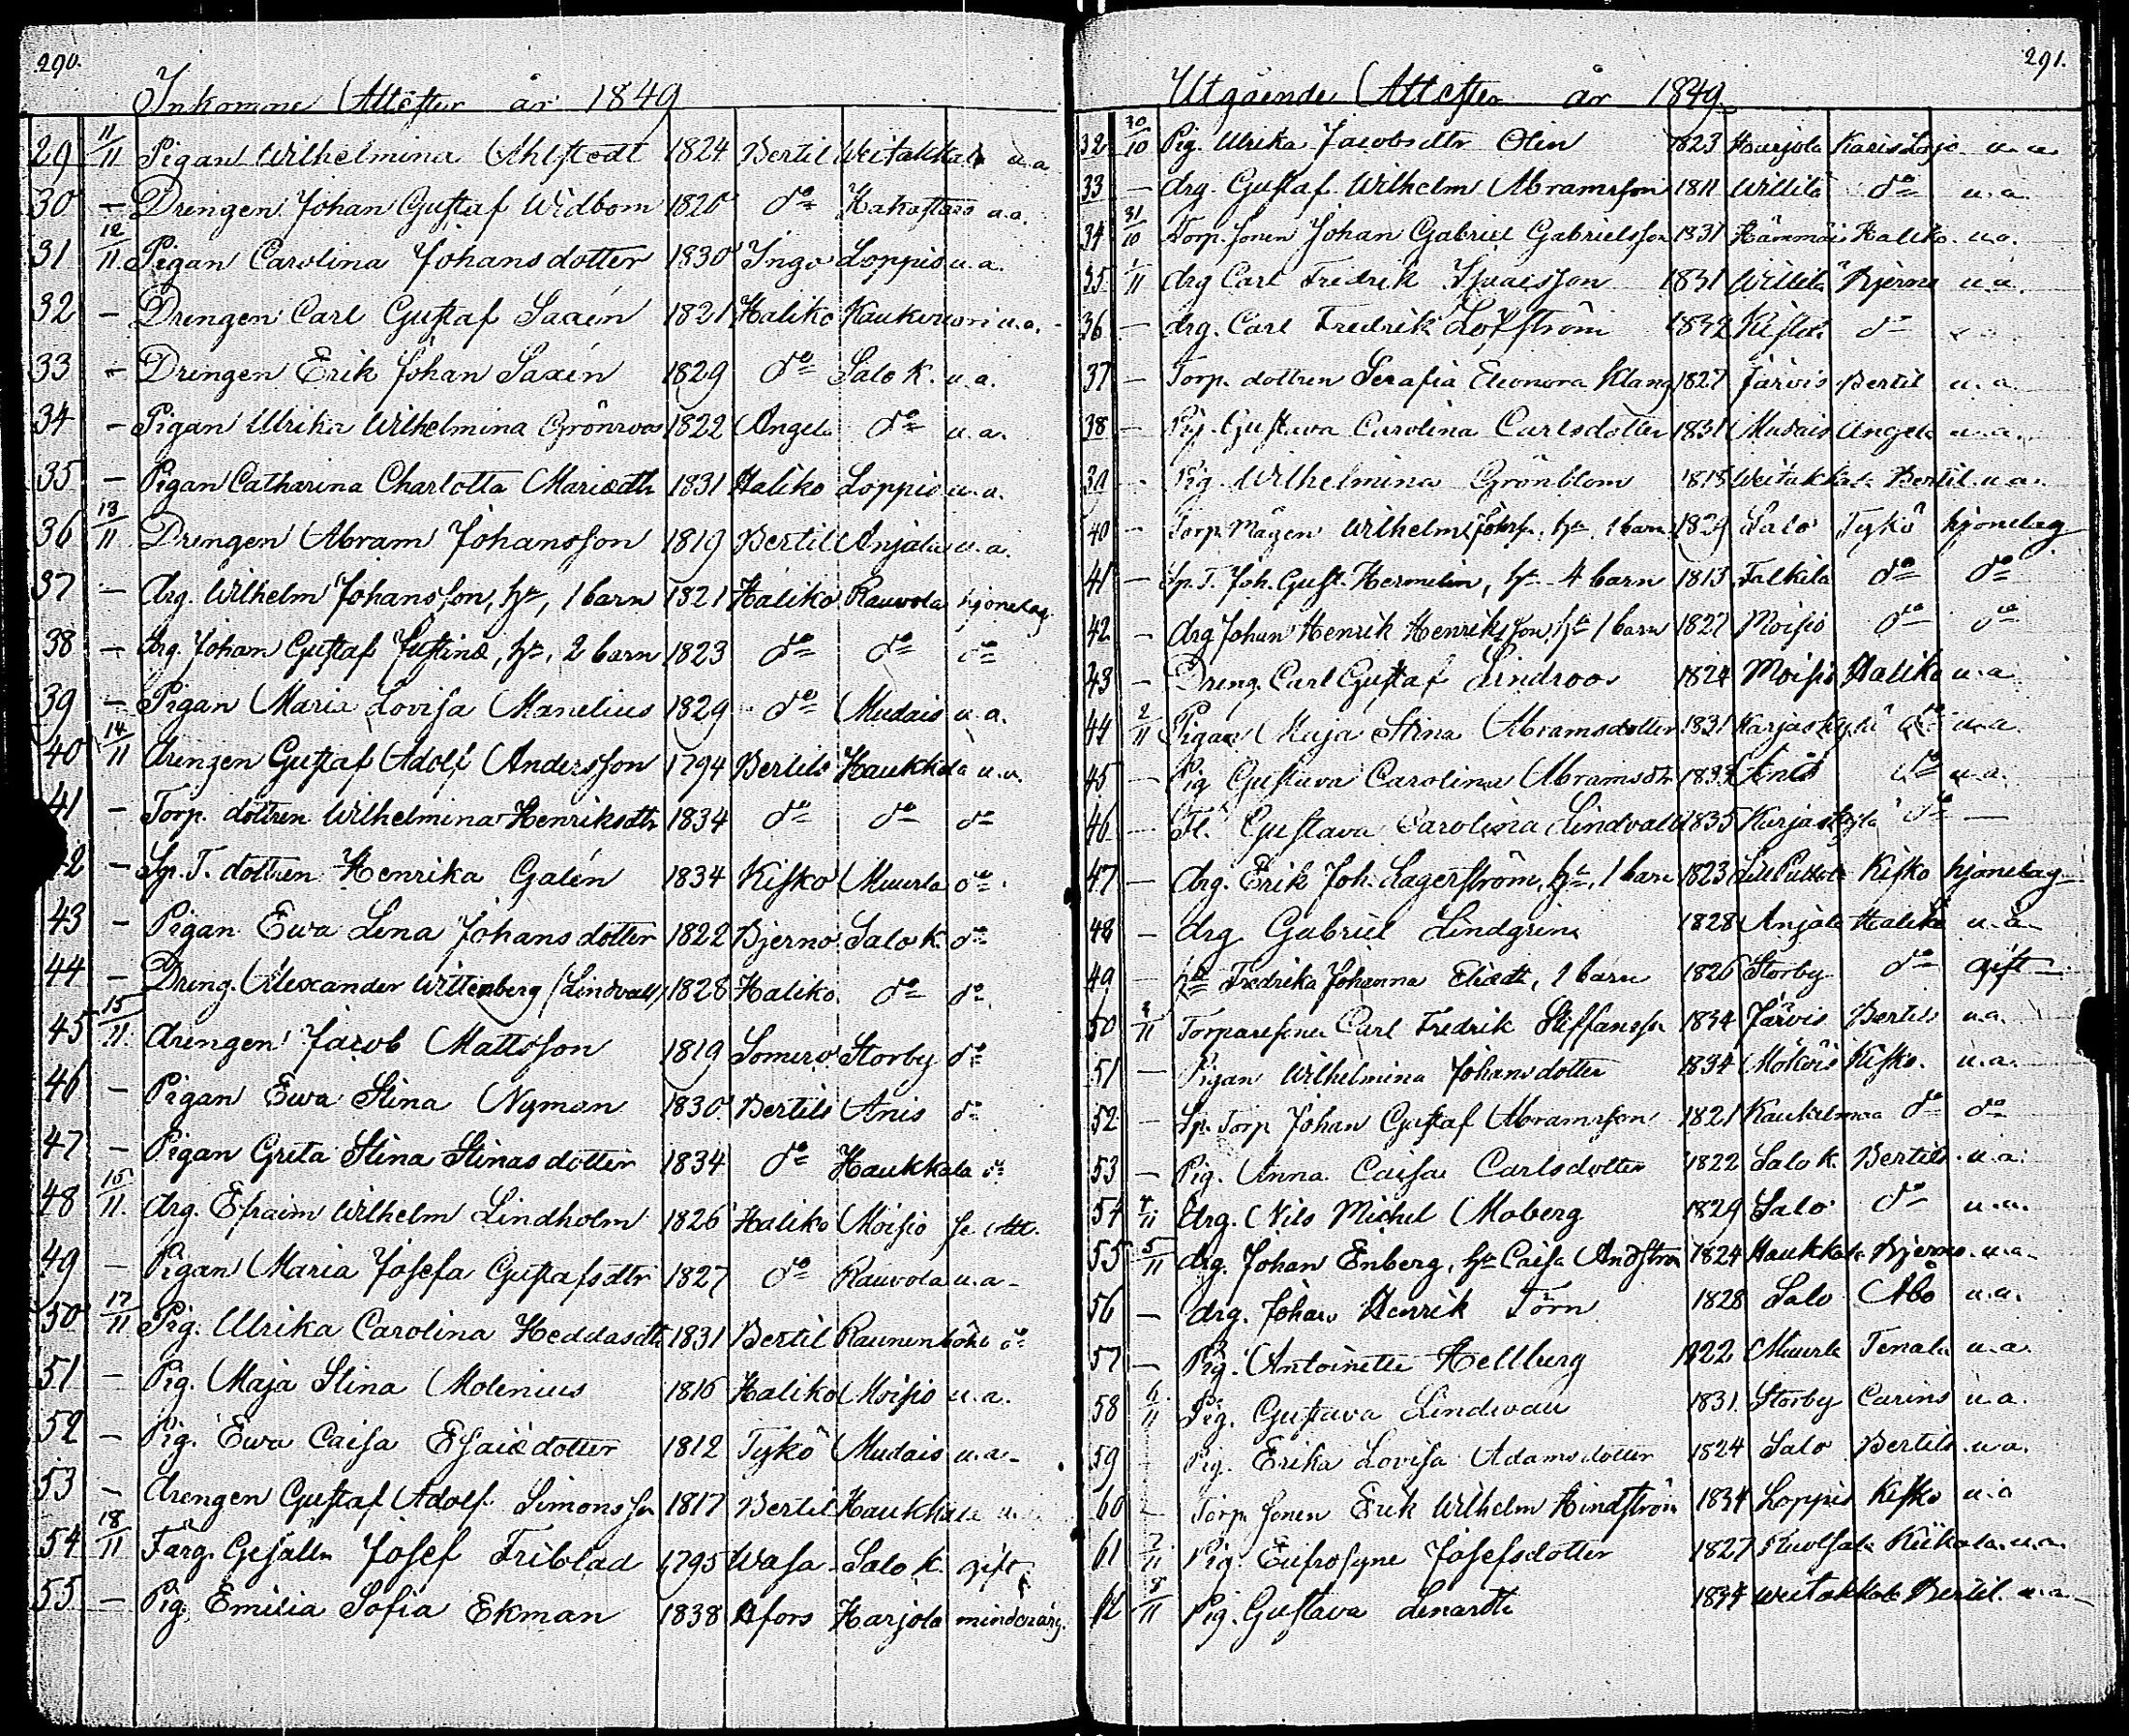 290.
Inkomne Attester år 1849
29 11/11 Pigan Wilhelmina Ahlstedt 1824 Bertil Weitakkala u.a.
30 — Drengen Johan Gustaf Widbom 1820 do Kakostais u.a.
31 12/11 Pigan Carolina Johansdotter 1830 Ingo Loppis u.a.
32 — Drengen Carl Gustaf Saxén 1821 Haliko Kaukvuori u.a.
33 — Drengen Erik Johan Saxén 1829 do Salo K. u.a.
34 — Pigan Ulrika Wilhelmina Grönroos 1822 Angela do u.a.
35 — Pigan Catharina Charlotta Mariedtr 1831 Haliko Loppis u.a.
36 13/11 Drengen Abram Johansson 1819 Bertil Anjala u.a.
37 — drg. Wilhelm Johansson, hu, 1 barn 1821 Haliko Rauvola hjonelag
38 — drg. Johan Gustaf Justins, hu, 2 barn 1823 do do do
39 — Pigan Maria Lovisa Manelius 1829 do Mudais u.a.
40 14/11 drengen Gustaf Adolf Andersson 1794 Bertils Haukkala u.a.
41 — Torp. dottren Wilhelmina Henriksdtr 1834 do do do
42 — Sp. T. dottren Henrika Galén 1834 Kisko Muurla do
43 — Pigan Ewa Lena Johansdotter 1822 Bjerno Salo K. do
44 — Dreng. Alexander Wittenberg (Lindvall) 1828 Haliko do do
45 15/11 drengen Jacob Mattsson 1819 Somero Storby do
46 — Pigan Ewa Stina Nyman 1830 Bertils Anis do
47 — Pigan Greta Stina Stinasdotter 1834 do Haukkala do
48 15/11 drg. Efraim Wilhelm Lindholm 1826 Haliko Moisio se att.
49 — Pigan Maria Josefa Gustafsdtr 1827 do Rauvola u.a.
50 17/11 Pig. Ulrika Carolina Heddasdtr 1831 Bertil do
51 — Pig. Maja Stina Molenius 1816 Haliko Moisio u.a.
52 — Pig. Ewa Caisa Esaiedotter 1812 Tykö Mudais u.a.
53 — drengen Gustaf Adolf Simonsson 1817 Bertil Haukkala u.
54 18/11 Färg. Gesällen Josef Friblad 1795 Wasa Salo K. gift
55 — Pig. Emilia Sofia Ekman 1838 Harjola minderårg.
291.
Utgående Attester år 1849
32 30/10 Pig. Ulrika Jacobsdtr Olin 1823 Harjola Karislojo u.a.
33 — drg. Gustaf Wilhelm Abramsson 1811 Willilä do u.a.
34 31/10 Torp. sonen Johan Gabriel Gabrielsson 1831 Haliko u.a.
35 1/11 drg Carl Fredrik 1831 Willilä Bjerno u.a.
36 — drg. Carl Fredrik Löfström 1832 do
37 — Torp. dottren Serafia Eleonora Klang 1827 Järvis Bertil u.a.
38 — Pig. Gustava Carolina Carlsdotter 1831 Mudais Angela u.a.
39 — Pig. Wilhelmina Grönblom 1815 Weitakkala Bertil u.a.
40 — Torp. Mågen Wilhelm Johnss. hu, 1 barn 1829 Salo Tykö hjonelag
41 — Sp. T. Joh. Gust. Hermelin, hu 4 barn 1813 Falkila do do
42 — drg Johan Henrik Henriksson, hu 1 barn 1827 Moisio do do
43 — Dreng. Carl Gustaf Lindroos 1824 Moisio Haliko u.a.
44 2/11 Pigan Maja Stina Abramsdotter 1831 Karjaskylä do u.a.
45 — Pig Gustava Carolina Abramsdtr 1833 Anis do u.a.
46 — Fl. Gustava Carolina Lindvall 1835 Karjaskylä do —
47 — drg. Erik Joh. Lagerström, hu, 1 barn 1823 Kisko hjonelag
48 — drg Gabriel Lindgren 1828 Anjala Haliko u.a.
49 — hu Fredrika Johanna Eliedtr, 1 barn 1826 Storby do gift
50 /11 Torparesonen Carl Fredrik Steffansson 1834 Järvis Bertils u.a.
51 — Pigan Wilhelmina Johansdotter 1834 Kisko. u.a.
52 — Sp. Torp Johan Gustaf Abramsson 1821 do do
53 — Pig. Anna Caisa Carlsdotter 1822 Salo K. Bertils u.a.
54 4/11 drg. Nils Michel Moberg 1829 Salo do u.a.
55 5/11 drg. Johan Enberg, hu Caisa Andström 1824 Haukkala Bjerno u.a.
56 — drg. Johan Henrik Törn 1828 Salo Åbo u.a.
57 — Pig. Antoinette Hellberg 1822 Muurla Tenala u.a.
58 6/11 Pig. Gustava Lindwall 1831 Storby Carins u.a.
59 Pig. Erika Lovisa Adamsdotter 1824 Salo Bertils u.a.
60 — Torp. sonen Erik Wilhelm Hindström 1834 Loppis Kisko u.a
61 7/11 Pig. Eufrosyne Josefsdotter 1827 Kiikala u.a.
62 8/11 Pig. Gustava Lenardtr 1834 Weitakkala Bertil u.a.